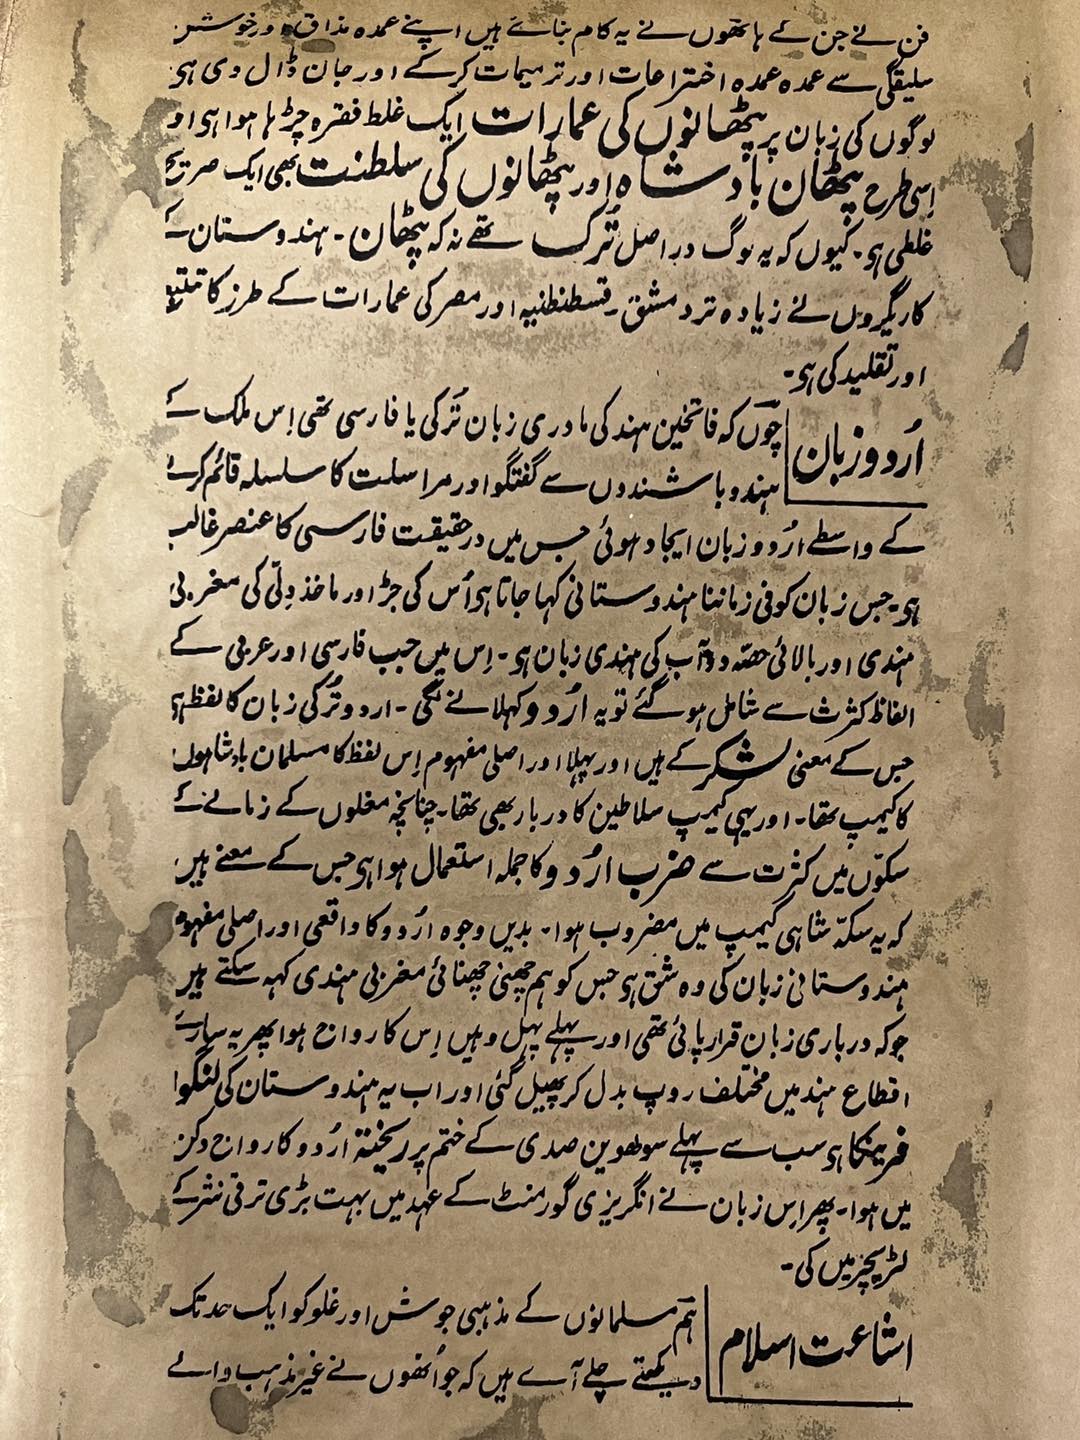 فن نے جن کے ہاتھوں نے یہ کام بنائے ہیں اپنے عمدہ مذاق اور خوش
سلیقگی سے عمدہ عمدہ اختراعات اور ترمیمات کر کے اور جان ڈال دی ہی
لوگوں کی زبان پر پٹھانوں کی عمارات ایک غلط فقرہ چڑہا ہوا ہی او
اِسی طرح پٹھان بادشاہ اور پٹھانوں کی سلطنت بھی ایک صریح
غلطی ہو۔ کیوں کہ یہ لوگ در اصل تُرک تھے نہ کہ پٹھان۔ ہندوستان کے
کاریگروں نے زیادہ تر دمشق۔ قسطنطنیہ اور مصر کی عمارات کے طرز کا تتبع
اور تقلید کی ہو۔
اُردو زبان
چوں کہ فاتحین ہند کی مادری زبان تُرکی یا فارسی تھی اِس ملک کے
ہندو باشندوں سے گفتگو اور مراسلت کا سلسلہ قائم کرنے
کے واسطے اُردو زبان ایجاد ہوئی جس میں در حقیقت فارسی کا عنصر غالب
ہو۔ جس زبان کو فی زماننا ہندوستانی کہا جاتا ہو اُس کی جڑ اور ماخذ دِلّی کی مغربی
ہندی اور بالائی حصّہ دوآب کی ہندی زبان ہو۔ اِس میں جب فارسی اور عربی کے
الفاظ کثرت سے شامل ہو گئے تو یہ اُردو کہلانے لگی۔ اردو تُرکی زبان کا لفظ ہی
جس کے معنی لشکر کے ہیں اور پہلا اور اصلی مفہوم اِس لفظ کا مسلمان بادشاہوں
کا کیمپ تھا۔ اور یہی کیمپ سلاطین کا دربار بھی تھا۔ چنانچہ مغلوں کے زمانے کے
سکّوں میں کثرت سے ضرب اُردو کا جملہ استعمال ہوا ہی جس کے معنے ہیں
کہ یہ سکّہ شاہی کیمپ میں مضروب ہوا۔ بدیں وجوہ اُردو کا واقعی اور اصلی مفہوم
ہندوستانی زبان کی وہ شق ہو جس کو ہم چھنی چھنائی مغربی ہندی کہہ سکتے ہیں
جو کہ درباری زبان قرار پائی تھی اور پہلے پہل وہیں اِس کا رواج ہوا پھر یہ سارے
اقطاع ہند میں مختلف روپ بدل کر پھیل گئی اور اب یہ ہندوستان کی لنگوا
فرینکا ہو سب سے پہلے سولھوین صدی کے ختم پر ریختۃ اُردو کا رواج دکن
میں ہوا۔ پھر اِس زبان نے انگریزی گورمنٹ کے عہد میں بہت بڑی ترقی نثر کے
لٹریچر میں کی۔
اشاعت اسلام
ہم مسلمانوں کے مذہبی جوش اور غلو کو ایک حد تک
دیکھتے چلے آے ہیں کہ جو اُنھوں نے غیر مذہب والے